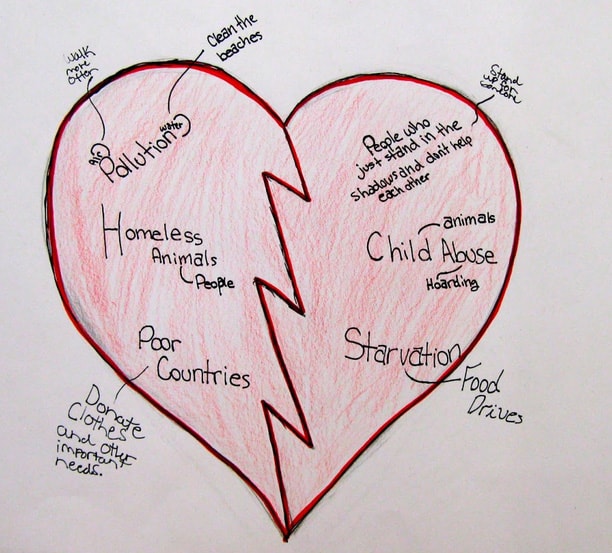 Walk
more
often
Clean the
beaches
air
water
Pollution
Homeless
Animals
People
Poor
Countries
Donate
Clothes
and other
important
needs.
Stand
up for
someone
People who
just stand in the
shadows and don't help
each other
animals
Child Abuse
Hoarding
Starvation
Food
Drives